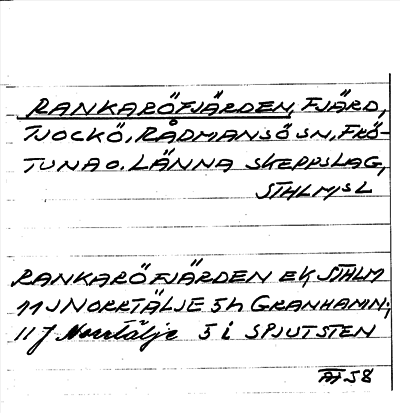 RANKARÖFJÄRDEN, FJÄRD,
TJOCKÖ, RÅDMANSÖ SN, FRÖ-
TUNA O. LÄNNA SKEPPSLAG,
STHLMS L
RANKARÖFJÄRDEN EK STHLM
11 J NORRTÄLJE 5h GRANHAMN;
11 J Norrtälje 5 i SPJUTSTEN
58